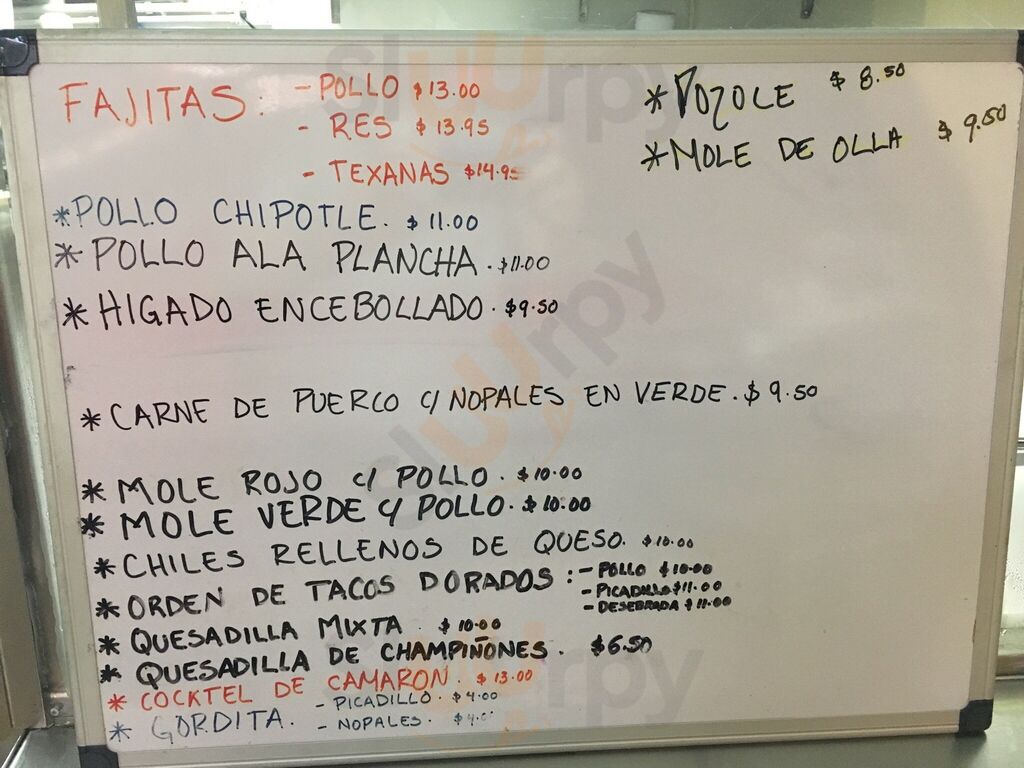 FAJITAS: - POLLO $13.00
- RES $13.95
- TEXANAS $14.95
*POZOLE $8.50
*MOLE DE OLLA $9.50
*POLLO CHIPOTLE. $11.00
*POLLO ALA PLANCHA. $11.00
*HIGADO ENCEBOLLADO. $9.50
*CARNE DE PUERCO C/NOPALES EN VERDE. $9.50
*MOLE ROJO C/ POLLO. $10.00
*MOLE VERDE C/ POLLO. $10.00
*CHILES RELLENOS DE QUESO. $10.00
*ORDEN DE TACOS DORADOS: - POLLO $10.00
- PICADILLO $11.00
- DESEBRADA $11.00
*QUESADILLA MIXTA. $10.00
*QUESADILLA DE CHAMPIÑONES. $6.50
*COCKTEL DE CAMARON. $13.00
*GORDITA. - PICADILLO. $4.00
- NOPALES.
sluurpy
sluurpy
sluurpy